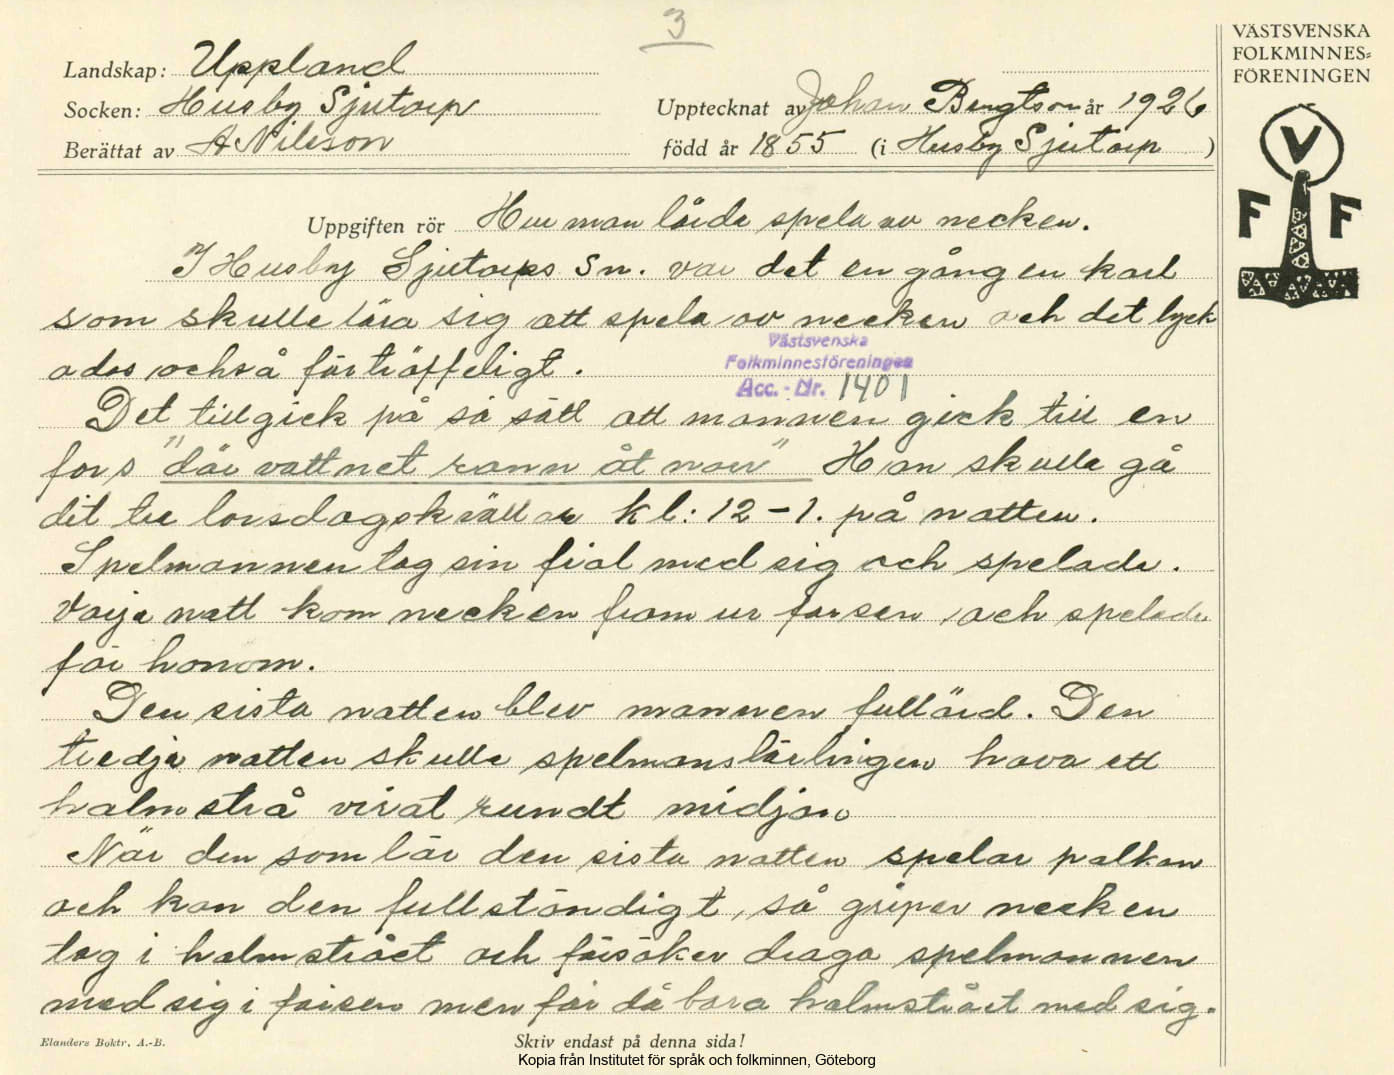 3
VÄSTSVENSKA
FOLKMINNES=
FÖRENINGEN
V
F F
Landskap: Uppland
Socken: Husby Sjutorp
Upptecknat av Johan Bengtson år 1926
Berättat av A Nilsson
född år 1855 (i Husby Sjutorp )
Uppgiften rör Hur man lärde spela av necken.
I Husby Sjutorps Sn. var det en gång en karl
som skulle lära sig att spela av necken och det lyck
ades också förträffeligt.
Västsvenska
Folkminnesföreningen
Acc. - Nr. 1401
Det tillgick på så sätt att mannen gick till en
fors "där vattnet rann åt norr" Han skulle gå
dit tre torsdagskvällar kl: 12 - 1. på natten.
Spelmannen tog sin fiol med sig och spelade.
Varje natt kom necken fram ur forsen, och spelade
för honom.
Den sista natten blev mannen fullärd. Den
tredje natten skulle spelmanslärlingen hava ett
halmstrå virat rundt midjan
När den som lär den sista natten spelar polkan
och kan den fullständigt, så griper necken
tag i halmstrået och försöker draga spelmannen
med sig i forsen men får då bara halmstrået med sig.
Elanders Boktr. A.-B.
Skriv endast på denna sida!
Kopia från Institutet för språk och folkminnen, Göteborg